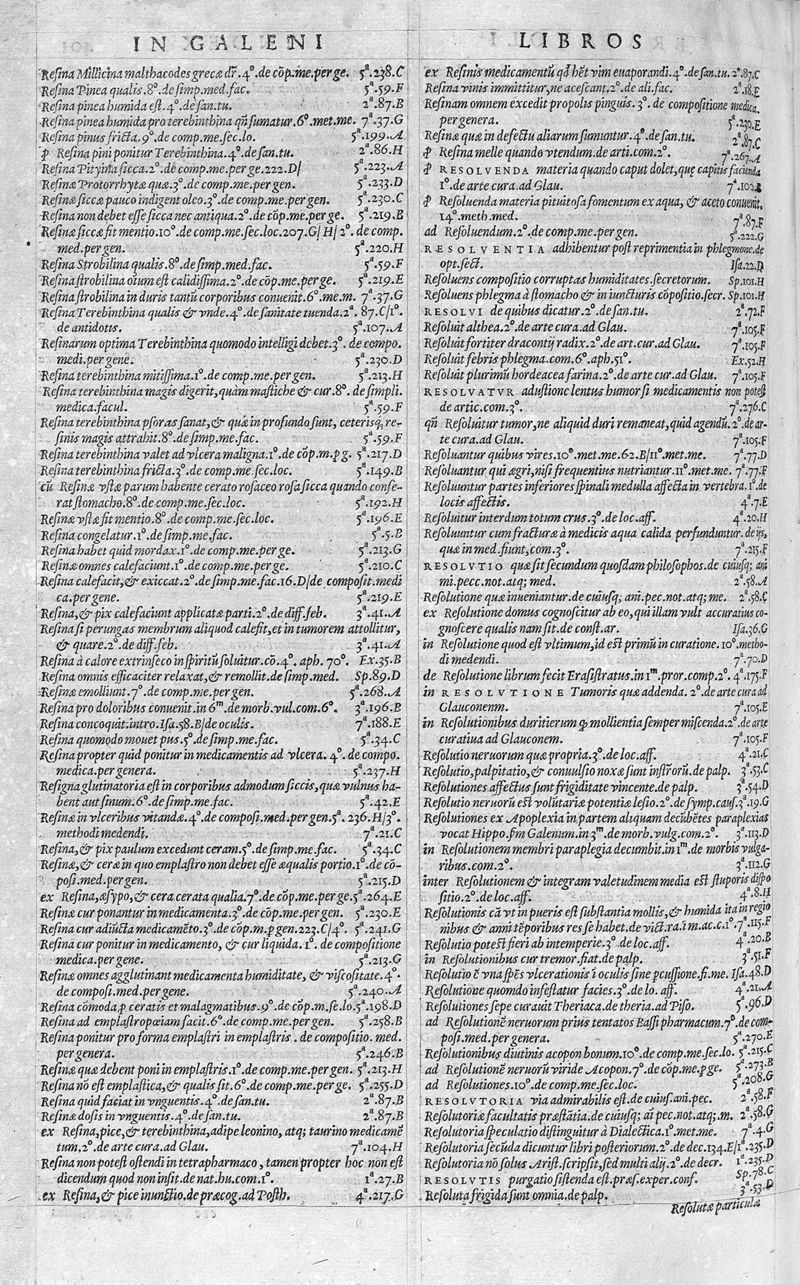 IN GALENI
Resina Millicina malthacodes grecæ dr̃. 4°. de cōp. me. per ge. 5ª. 238. C
Resina Pinea qualis. 8°. de simp. med. fac. 5ª. 59. F
Resina pinea humida est. 4°. de san. tu. 2ª. 87. B
Resina pinea humida pro terebinthina qñ sumatur. 6°. met. me. 7ª. 37. G
Resina pinus fricta. 9°. de comp. me. sec. lo. 5ª. 199. A
ꝓ Resina pini ponitur Terebinthina. 4°. de san. tu. 2ª. 86. H
Resina Pityina sicca. 2°. de comp. me. per ge. 222. D/ 5ª. 223. A
Resinæ Protorrhytæ quæ. 3°. de comp. me. per gen. 5ª. 233. D
Resinæ siccæ pauco indigent oleo. 3°. de comp. me. per gen. 5ª. 230. C
Resina non debet esse sicca nec antiqua. 2°. de cōp. me. per ge. 5ª. 219. B
Resinæ siccæ fit mentio. 10°. de comp. me. sec. loc. 207. G/ H/ 2°. de comp.
med. per gen. 5ª. 220. H
Resina Strobilina qualis. 8°. de simp. med. fac. 5ª. 59. F
Resina strobilina oīum est calidissima. 2°. de cōp. me. per ge. 5ª. 219. E
Resina strobilina in duris tantū corporibus conuenit. 6°. me. m. 7ª. 37. G
Resina Terebinthina qualis & vnde. 4°. de sanitate tuenda. 2ª. 87. C/ 1°.
de antidotis. 5ª. 107. A
Resinarum optima Terebinthina quomodo intelligi debet. 3°. de compo.
medi. per gene. 5ª. 230. D
Resina terebinthina mitissima. 1°. de comp. me. per gen. 5ª. 213. H
Resina terebinthina magis digerit, quàm mastiche & cur. 8°. de simpli.
medica. facul. 5ª. 59. F
Resina terebinthina psoras sanat, & quæ in profundo sunt, ceterisq; re-
sinis magis attrahit. 8°. de simp. me. fac. 5ª. 59. F
Resina terebinthina valet ad vlcera maligna. 1°. de cōp. m. ꝑ g. 5ª. 217. D
Resina terebinthina fricta. 3°. de comp. me. sec. loc. 5ª. 149. B
cū Resinæ vstæ parum habente cerato rosaceo rosa sicca quando confe-
rat stomacho. 8°. de comp. me. sec. loc. 5ª. 192. H
Resinæ vstæ fit mentio. 8°. de comp. me. sec. loc. 5ª. 196. E
Resina congelatur. 1°. de simp. me. fac. 5ª. 5. B
Resina habet quid mordax. 1°. de comp. me. per ge. 5ª. 213. G
Resinæ omnes calefaciunt. 1°. de comp. me. per gen. 5ª. 210. C
Resina calefacit, & exiccat. 2°. de simp. me. fac. 16. D/ de composit. medi
ca. per gene. 5ª. 219. E
Resina, & pix calefaciunt applicatæ parti. 2°. de diff. feb. 3ª. 41. A
Resina si perungas membrum aliquod calefit, et in tumorem attollitur,
& quare. 2°. de diff. feb. 3ª. 41. A
Resina à calore extrinseco in spiritū soluitur. cō. 4°. aph. 70°. Ex. 35. B
Resina omnis efficaciter relaxat, & remollit. de simp. med. Sp. 89. D
Resinæ emolliunt. 7°. de comp. me. per gen. 5ª. 268. A
Resina pro doloribus conuenit. in 6ᵐ. de morb. vul. com. 6°. 3ª. 196. B
Resina concoquit. intro. Isa. 58. E/ de oculis. 7ª. 188. E
Resina quomodo mouet pus. 5°. de simp. me. fac. 5ª. 34. C
Resina propter quid ponitur in medicamentis ad vlcera. 4°. de compo.
medica. per genera. 5ª. 237. H
Resigna glutinatoria est in corporibus admodum siccis, quæ vulnus ha-
bent aut sinum. 6°. de simp. me. fac. 5ª. 42. E
Resinæ in vlceribus vitandæ. 4°. de composi. med. per gen. 5ª. 236. H/ 3°.
methodi medendi. 7ª. 21. C
Resina, & pix paulum excedunt ceram. 5°. de simp. me. fac. 5ª. 34. C
Resinæ, & ceræ in quo emplastro non debet esse æqualis portio. 1°. de cō-
posi. med. per gen. 5ª. 215. D
ex Resina, æsypo, & cera cerata qualia. 7°. de cōp. me. per ge. 5ª. 264. E
Resinæ cur ponantur in medicamenta. 3°. de cōp. me. per gen. 5ª. 230. E
Resina cur adiūcta medicamēto. 3°. de cōp. m. ꝑ gen. 223. C/ 4°. 5ª. 241. G
Resina cur ponitur in medicamento, & cur liquida. 1°. de compositione
medica. per gene. 5ª. 213. G
Resinæ omnes agglutinant medicamenta humiditate, & viscositate. 4°.
de composi. med. per gen. 5ª. 240. A
Resina cōmoda ꝓ ceratis et malagmatibus. 9°. de cōp. m. se. lo. 5ª. 198. D
Resina ad emplastropœiam facit. 6°. de comp. me. per gen. 5ª. 258. B
Resina ponitur pro forma emplastri in emplastris. de compositio. med.
per genera. 5ª. 246. B
Resinæ quæ debent poni in emplastris. 1°. de comp. me. per gen. 5ª. 213. H
Resina nō est emplastica, & qualis sit. 6°. de comp. me. per ge. 5ª. 255. D
Resina quid faciat in vnguentis. 4°. de san. tu. 2ª. 87. B
Resinæ dosis in vnguentis. 4°. de san. tu. 2ª. 87. B
ex Resina, pice, & terebinthina, adipe leonino, atq; taurino medicamē
tum. 2°. de arte cura. ad Glau. 7ª. 104. H
Resina non potest ostendi in tetrapharmaco, tamen propter hoc non est
dicendum quod non insit. de nat. hu. com. 1°. 1ª. 27. B
ex Resina, & pice inunctio. de præcog. ad Posth. 4ª. 217. G
LIBROS
ex Resinis medicamentū qđ hēt vim euaporandi. 4°. de san. tu. 2ª. 87. C
Resina vinis immittitur, ne acescant. 2°. de ali. fac. 2ª. 18. E
Resinam omnem excedit propolis pinguis. 3°. de compositione medica.
per genera. 5ª. 230. E
Resinæ quæ in defectu aliarum sumuntur. 4°. de san. tu. 2ª. 87. C
ꝓ Resina melle quando vtendum. de arti. com. 2°. 7ª. 267. A
ꝓ RESOLVENDA materia quando caput dolet, quę capitis facienda
1°. de arte cura. ad Glau. 7ª. 102.
ꝓ Resoluenda materia pituitosa fomentum ex aqua, & aceto conuenit,
14°. meth. med. 7ª. 87. F
ad Resoluendum. 2°. de comp. me. per gen. 5ª. 222. G
RESOLVENTIA adhibentur post reprimentia in phlegmone. de
opt. sect. Isa. 22. D
Resoluens compositio corruptas humiditates. secretorum. Sp. 101. H
Resoluens phlegma à stomacho & in iuncturis cōpositio. secr. Sp. 101. H
RESOLVI de quibus dicatur. 2°. de san. tu. 2ª. 72. F
Resoluit althea. 2°. de arte cura. ad Glau. 7ª. 105. F
Resoluit fortiter dracontij radix. 2°. de art. cur. ad Glau. 7ª. 105. F
Resoluit febris phlegma. com. 6°. aph. 51°. Ex. 52. H
Resoluit plurimū hordeacea farina. 2°. de arte cur. ad Glau. 7ª. 105. F
RESOLVATVR adustione lentus humor si medicamentis non potest
de artic. com. 3°. 7ª. 276. C
qñ Resoluitur tumor, ne aliquid duri remaneat, quid agendū. 2°. de ar-
te cura. ad Glau. 7ª. 105. F
Resoluantur quibus vires. 10°. met. me. 62. B/ 11°. met. me. 7ª. 77. D
Resoluantur qui ægri, nisi frequentius nutriantur. 11°. met. me. 7ª. 77. F
Resoluuntur partes inferiores spinali medulla affecta in vertebra. 1°. de
locis affectis. 4ª. 7. E
Resoluitur interdum totum crus. 3°. de loc. aff. 4ª. 20. H
Resoluuntur cum fracturæ à medicis aqua calida perfunduntur. de ijs,
quæ in med. fiunt, com. 3°. 7ª. 215. F
RESOLVTIO quæ sit secundum quosdam philosophos. de cuiusq; ani
mi. pecc. not. atq; med. 2ª. 58. A
Resolutione quæ inueniantur. de cuiusq; ani. pec. not. atq; me. 2ª. 58. C
ex Resolutione domus cognoscitur ab eo, qui illam vult accuratius co-
gnoscere qualis nam sit. de const. ar. Isa. 36. G
in Resolutione quod est vltimum, id est primū in curatione. 10°. metho-
di medendi. 7ª. 70. D
de Resolutione librum fecit Erasistratus. in 1ᵐ. pror. comp. 2°. 4ª. 175. F
in RESOLVTIONE Tumoris quæ addenda. 2°. de arte cura ad
Glauconemm. 7ª. 105. E
in Resolutionibus duritierum ꝙ mollientia semper miscenda. 2°. de arte
curatiua ad Glauconem. 7ª. 105. F
Resolutio neruorum quæ propria. 3°. de loc. aff. 4ª. 21. C
Resolutio, palpitatio, & conuulsio noxæ sunt instr̄orū. de palp. 3ª. 53. C
Resolutiones affectus sunt frigiditate vincente. de palp. 3ª. 54. D
Resolutio neruorū est volūtariæ potentiæ lesio. 2°. de symp. caus. 3ª. 19. G
Resolutiones ex Apoplexia in partem aliquam decūbētes paraplexias
vocat Hippo. ꝼm Galenum. in 3ᵐ. de morb. vulg. com. 2°. 3ª. 113. D
in Resolutionem membri paraplegia decumbit. in 1ᵐ. de morbis vulga-
ribus. com. 2°. 3ª. 112. G
inter Resolutionem & integram valetudinem media est stuporis dispo
sitio. 2°. de loc. aff. 4ª. 8. H
Resolutionis cā vt in pueris est substantia mollis, & humida ita in regio
nibus & anni tēporibus res se habet. de vict. ra. i m. ac. c. 1°. 7ª. 115. F
Resolutio potest fieri ab intemperie. 3°. de loc. aff. 4ª. 20. B
in Resolutionibus cur tremor fiat. de palp. 3ª. 51. F
Resolutio ē vna spēs vlcerationis ī oculis sine ꝑcussione. fi. me. Isa. 48. D
Resolutione quomdo infestatur facies. 3°. de lo. aff. 4ª. 21. A
Resolutiones sepe curauit Theriaca. de theria. ad Piso. 5ª. 96. D
ad Resolutionē neruorum prius tentatos Bassi pharmacum. 7°. de com-
posi. med. per genera. 5ª. 270. E
Resolutionibus diutinis acopon bonum. 10°. de comp. me. sec. lo. 5ª. 215. C
ad Resolutionē neruorū viride Acopon. 7°. de cōp. me. ꝑ ge. 5ª. 273. B
ad Resolutiones. 10°. de comp. me. sec. loc. 5ª. 208. G
RESOLVTORIA via admirabilis est. de cuius. ani. pec. 2ª. 58. F
Resolutoriæ facultatis præstātia. de cuiusq; ai pec. not. atq; m. 2ª. 58. G
Resolutoria speculatio distinguitur à Dialectica. 1°. met. me. 7ª. 4. G
Resolutoria secūda dicuntur libri posteriorum. 2°. de dec. 134. E/ 1ª. 235. D
Resolutoria nō solus Arist. scripsit, sed multi alij. 2°. de decr. 1ª. 235. D
RESOLVTIS purgatio sistenda est. præs. exper. conf. Sp. 78. C
Resoluta frigida sunt omnia. de palp. 3ª. 53. D
Resolutæ particulæ